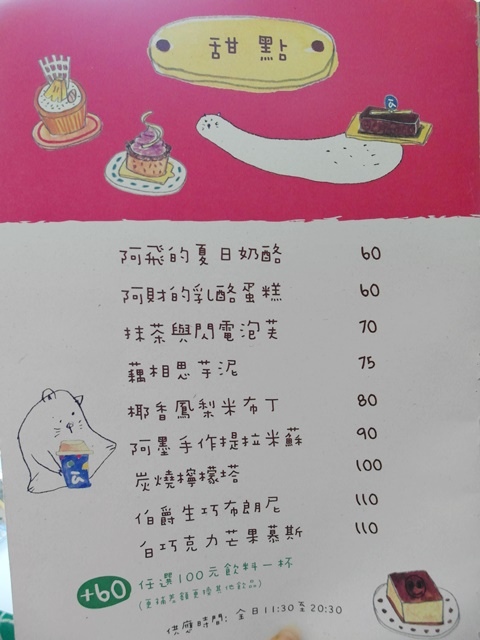 甜點
阿飛的夏日奶酪 60
阿財的乳酪蛋糕 60
抹茶與閃電泡芙 70
藕相思芋泥 75
椰香鳳梨米布丁 80
阿墨手作提拉米蘇 90
炭燒檸檬塔 100
伯爵生巧布朗尼 110
白巧克力芒果慕斯 110
+60 任選100元飲料一杯
(更補差額更換其他飲品)
供應時間: 全日11:30至20:30